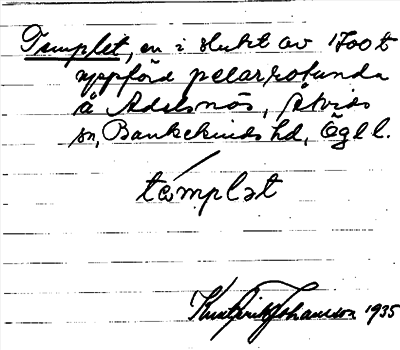 Templet, en i slutet av 1700 t
uppförd pelarrotunda
å Adelsnäs, Åtvids
sn, Bankekinds hd, Ögl l.
támplət
Knut Erik Johansson 1935